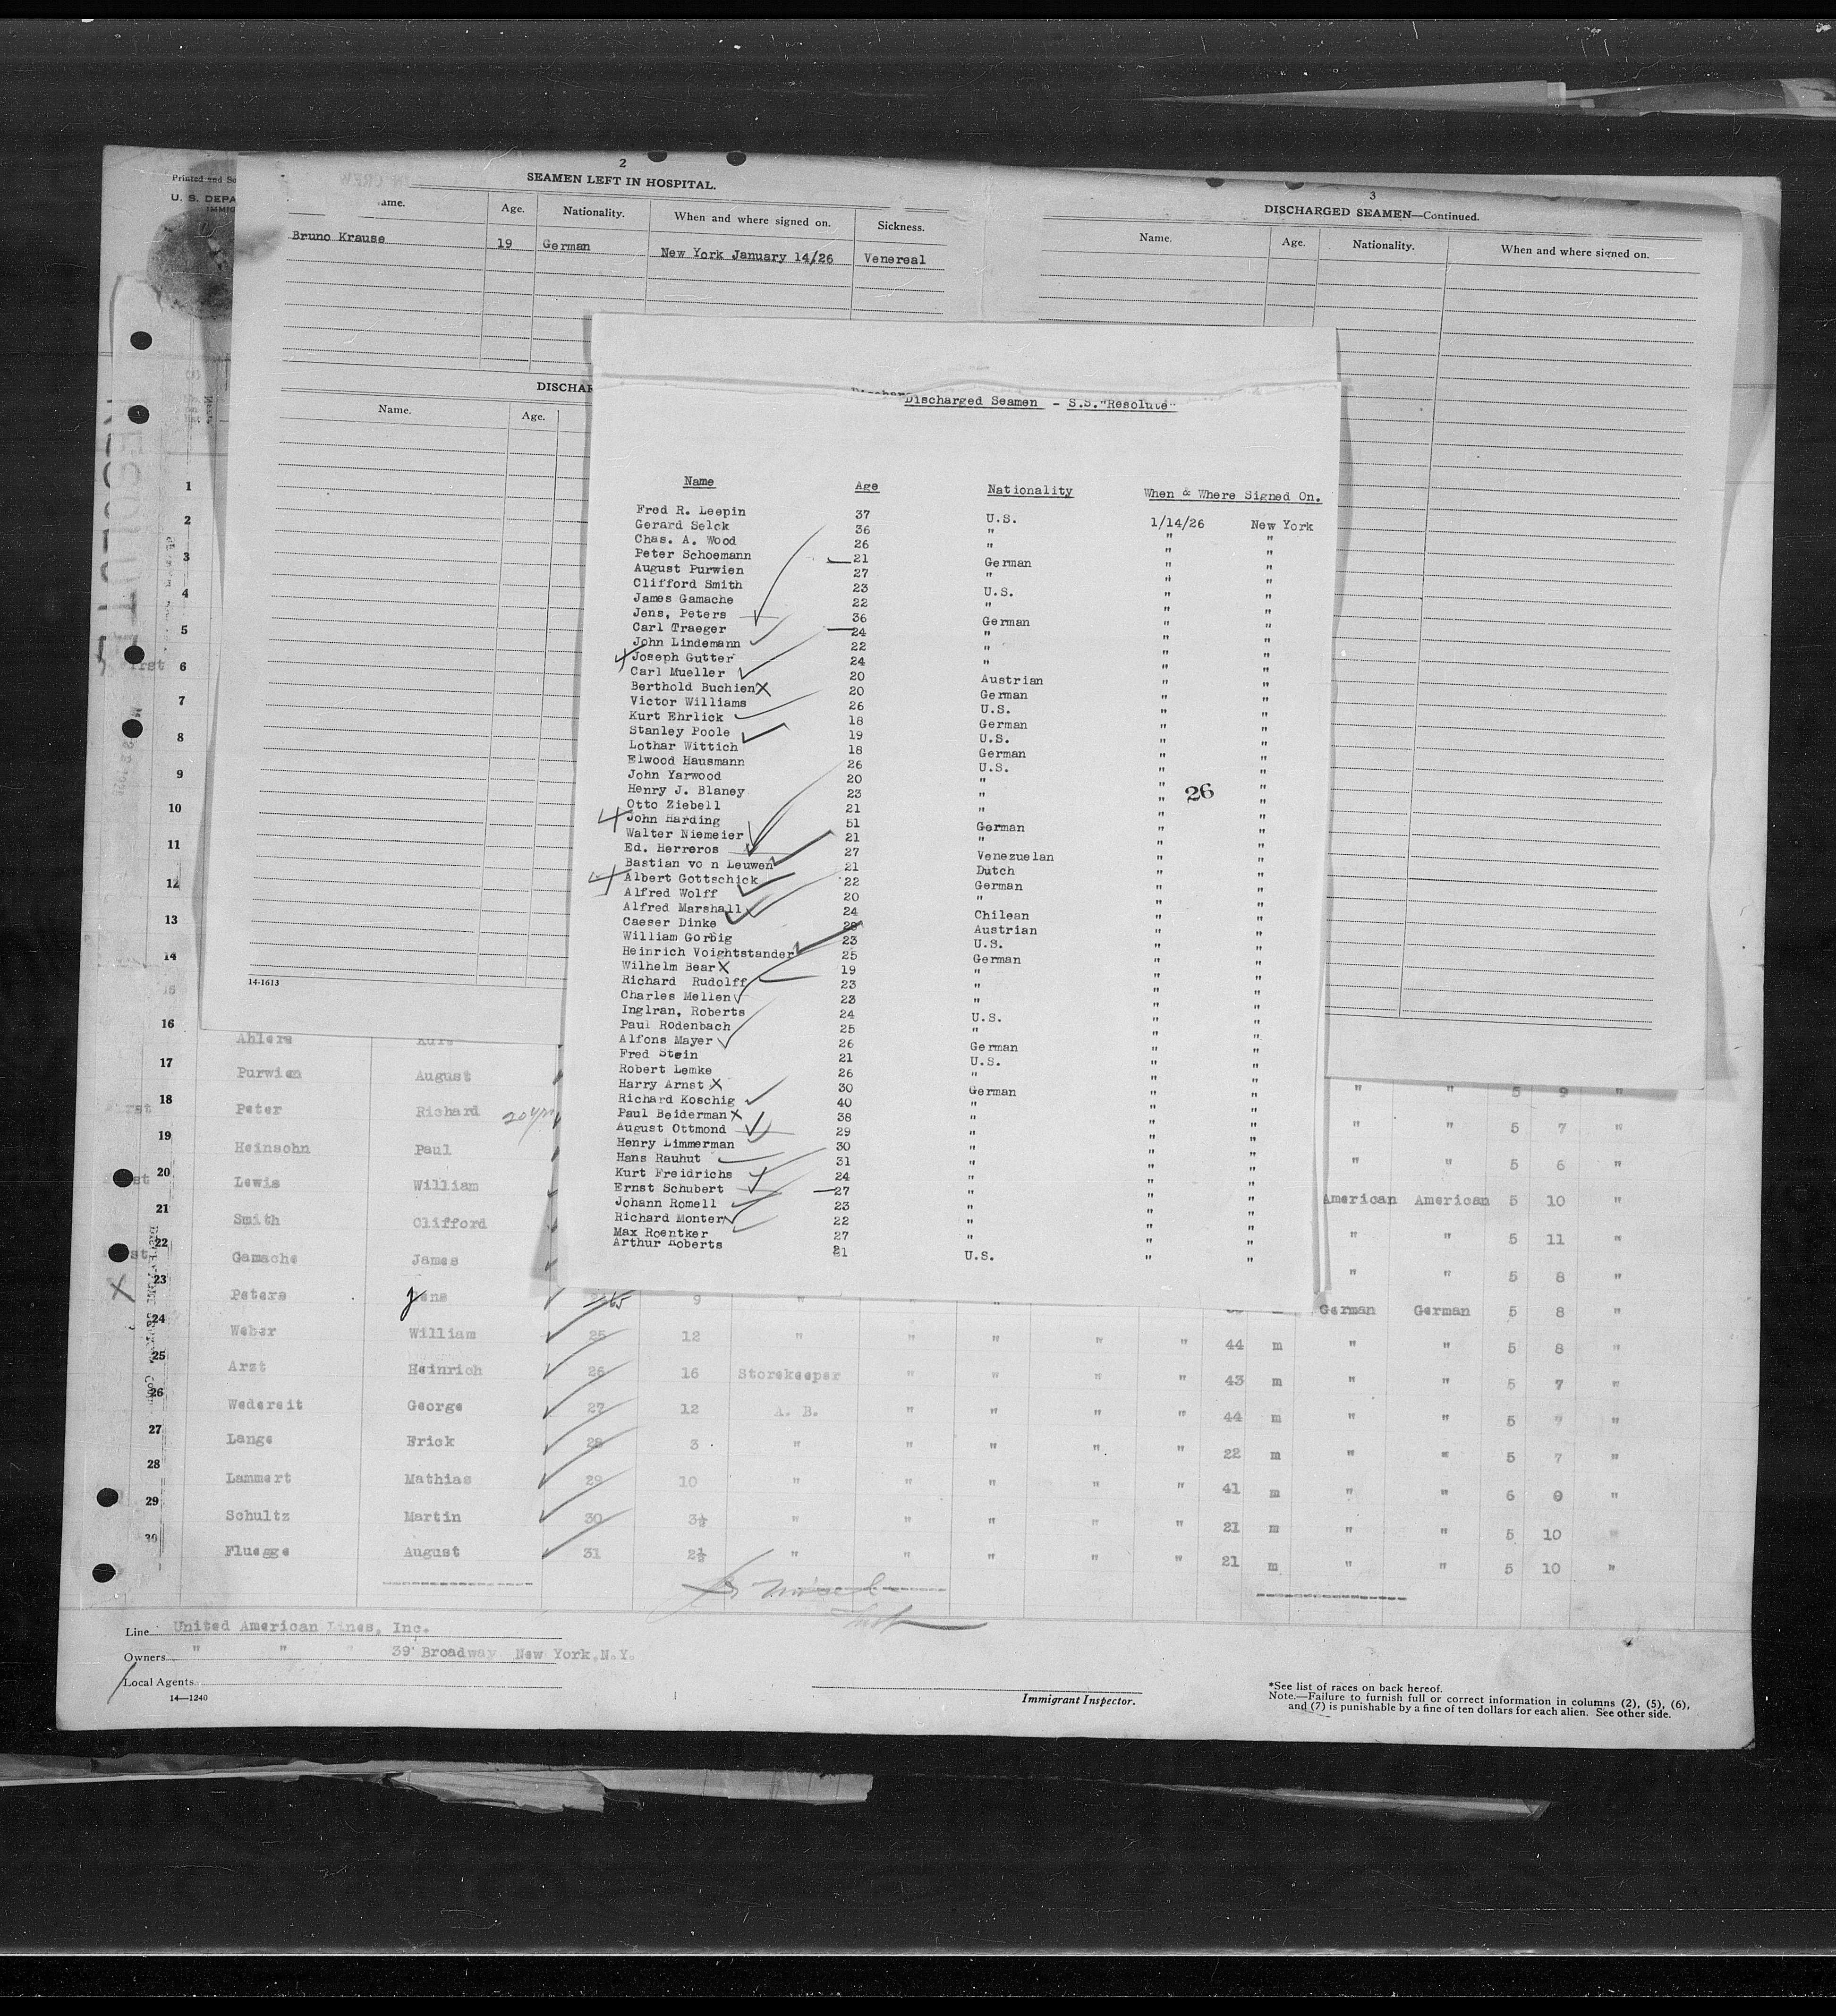 Printed and So
U. S. DEPA
IMMIG
2
SEAMEN LEFT IN HOSPITAL.
ame. Age. Nationality. When and where signed on. Sickness.
Bruno Krause 19 German New York January 14/26 Venereal
DISCHAR
Name. Age.
14-1613
3
DISCHARGED SEAMEN—Continued.
Name. Age. Nationality. When and where signed on.
RESOLUTE
Discharged Seamen - S.S."Resolute"
Name Age Nationality When & Where Signed On.
Fred R. Leepin 37 U.S. 1/14/26 New York
Gerard Selck 36 " " "
Chas. A. Wood 26 " " "
Peter Schoemann 21 German " "
August Purwien 27 " " "
Clifford Smith 23 U.S. " "
James Gamache 22 " " "
Jens, Peters 36 German " "
Carl Traeger 24 " " "
John Lindemann 22 " " "
Joseph Gutter 24 " " "
Carl Mueller 20 Austrian " "
Berthold Buchien X 20 German " "
Victor Williams 26 U.S. " "
Kurt Ehrlick 18 German " "
Stanley Poole 19 U.S. " "
Lothar Wittich 18 German " "
Elwood Hausmann 26 U.S. " "
John Yarwood 20 " " "
Henry J. Blaney 23 " " 26 "
Otto Ziebell 21 " " "
John Harding 51 German " "
Walter Niemeier 21 " " "
Ed. Herreros 27 Venezuelan " "
Bastian vo n Leuwen 21 Dutch " "
Albert Gottschick 22 German " "
Alfred Wolff 20 " " "
Alfred Marshall 24 Chilean " "
Caeser Dinke 28 Austrian " "
William Gorbig 23 U.S. " "
Heinrich Voightstander 25 German " "
Wilhelm Bear X 19 " " "
Richard Rudolff 23 " " "
Charles Mellen 23 " " "
Inglran, Roberts 24 U.S. " "
Paul Rodenbach 25 " " "
Alfons Mayer 26 German " "
Fred Stein 21 U.S. " "
Robert Lemke 26 " " "
Harry Arnst X 30 German " "
Richard Koschig 40 " " "
Paul Beiderman X 38 " " "
August Ottmond 29 " " "
Henry Limmerman 30 " " "
Hans Rauhut 31 " " "
Kurt Freidrichs 24 " " "
Ernst Schubert 27 " " "
Johann Romell 23 " " "
Richard Monter 22 " " "
Max Roentker 27 " " "
Arthur Roberts 21 U.S. " "
1
2
3
4
5
6
7
8
9
10
11
12
13
14
15
16 Ahlers Kurt
17 Purwien August " " 5 9 "
18 Peter Richard " " 5 7 "
19 Heinsohn Paul " " 5 6 "
20 Lewis William American American 5 10 "
21 Smith Clifford " " 5 11 "
22 Gamache James " " 5 8 "
23 Peters Jens 9 " German German 5 8 "
24 Weber William 25 12 " " " " " 44 m " " 5 8 "
25 Arzt Heinrich 26 16 Storekeeper " " " " 43 m " " 5 7 "
26 Wedereit George 27 12 A. B. " " " " 44 m " " 5 7 "
27 Lange Erick 28 3 " " " " " 22 m " " 5 7 "
28 Lammert Mathias 29 10 " " " " " 41 m " " 6 0 "
29 Schultz Martin 30 3½ " " " " " 21 m " " 5 10 "
30 Fluegge August 31 2½ " " " " " 21 m " " 5 10 "
Line United American Lines, Inc.
Owners " " " 39 Broadway New York.N.Y.
Local Agents
14—1240
Immigrant Inspector.
*See list of races on back hereof.
Note.—Failure to furnish full or correct information in columns (2), (5), (6),
and (7) is punishable by a fine of ten dollars for each alien. See other side.